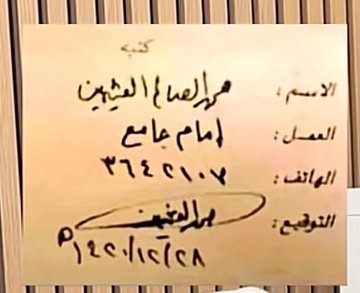 كتبه
الاسم: محمد الصالح العثيمين
العمل: إمام جامع
الهاتف: ٣٦٤٢١٠٧
التوقيع: محمد العثيمين
١٤٢٠/١٢/٢٨ هـ